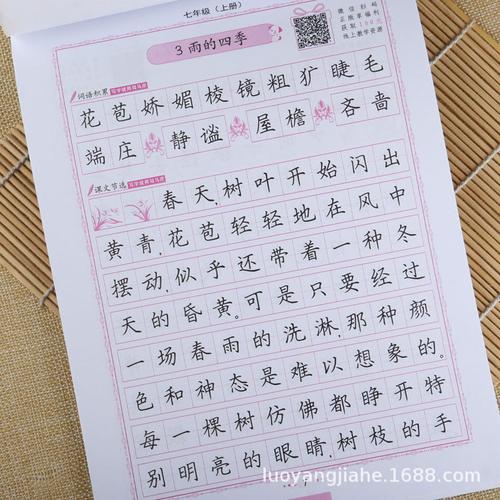 七年级（上册）
微信扫码
正版享福利
获取100元
线上教学资源
3 雨的四季
词语积累
花苞 娇媚 棱镜 粗犷 睫毛
端庄 静谧 屋檐 吝啬
课文节选
春天，树叶开始闪出
黄青，花苞轻轻地在风中
摆动，似乎还带着一种冬
天的昏黄。可是只要经过
一场春雨的洗淋，那种颜
色和神态是难以想象的。
每一棵树仿佛都睁开特
别明亮的眼睛，树枝的手
luoyangjiahe.1688.com